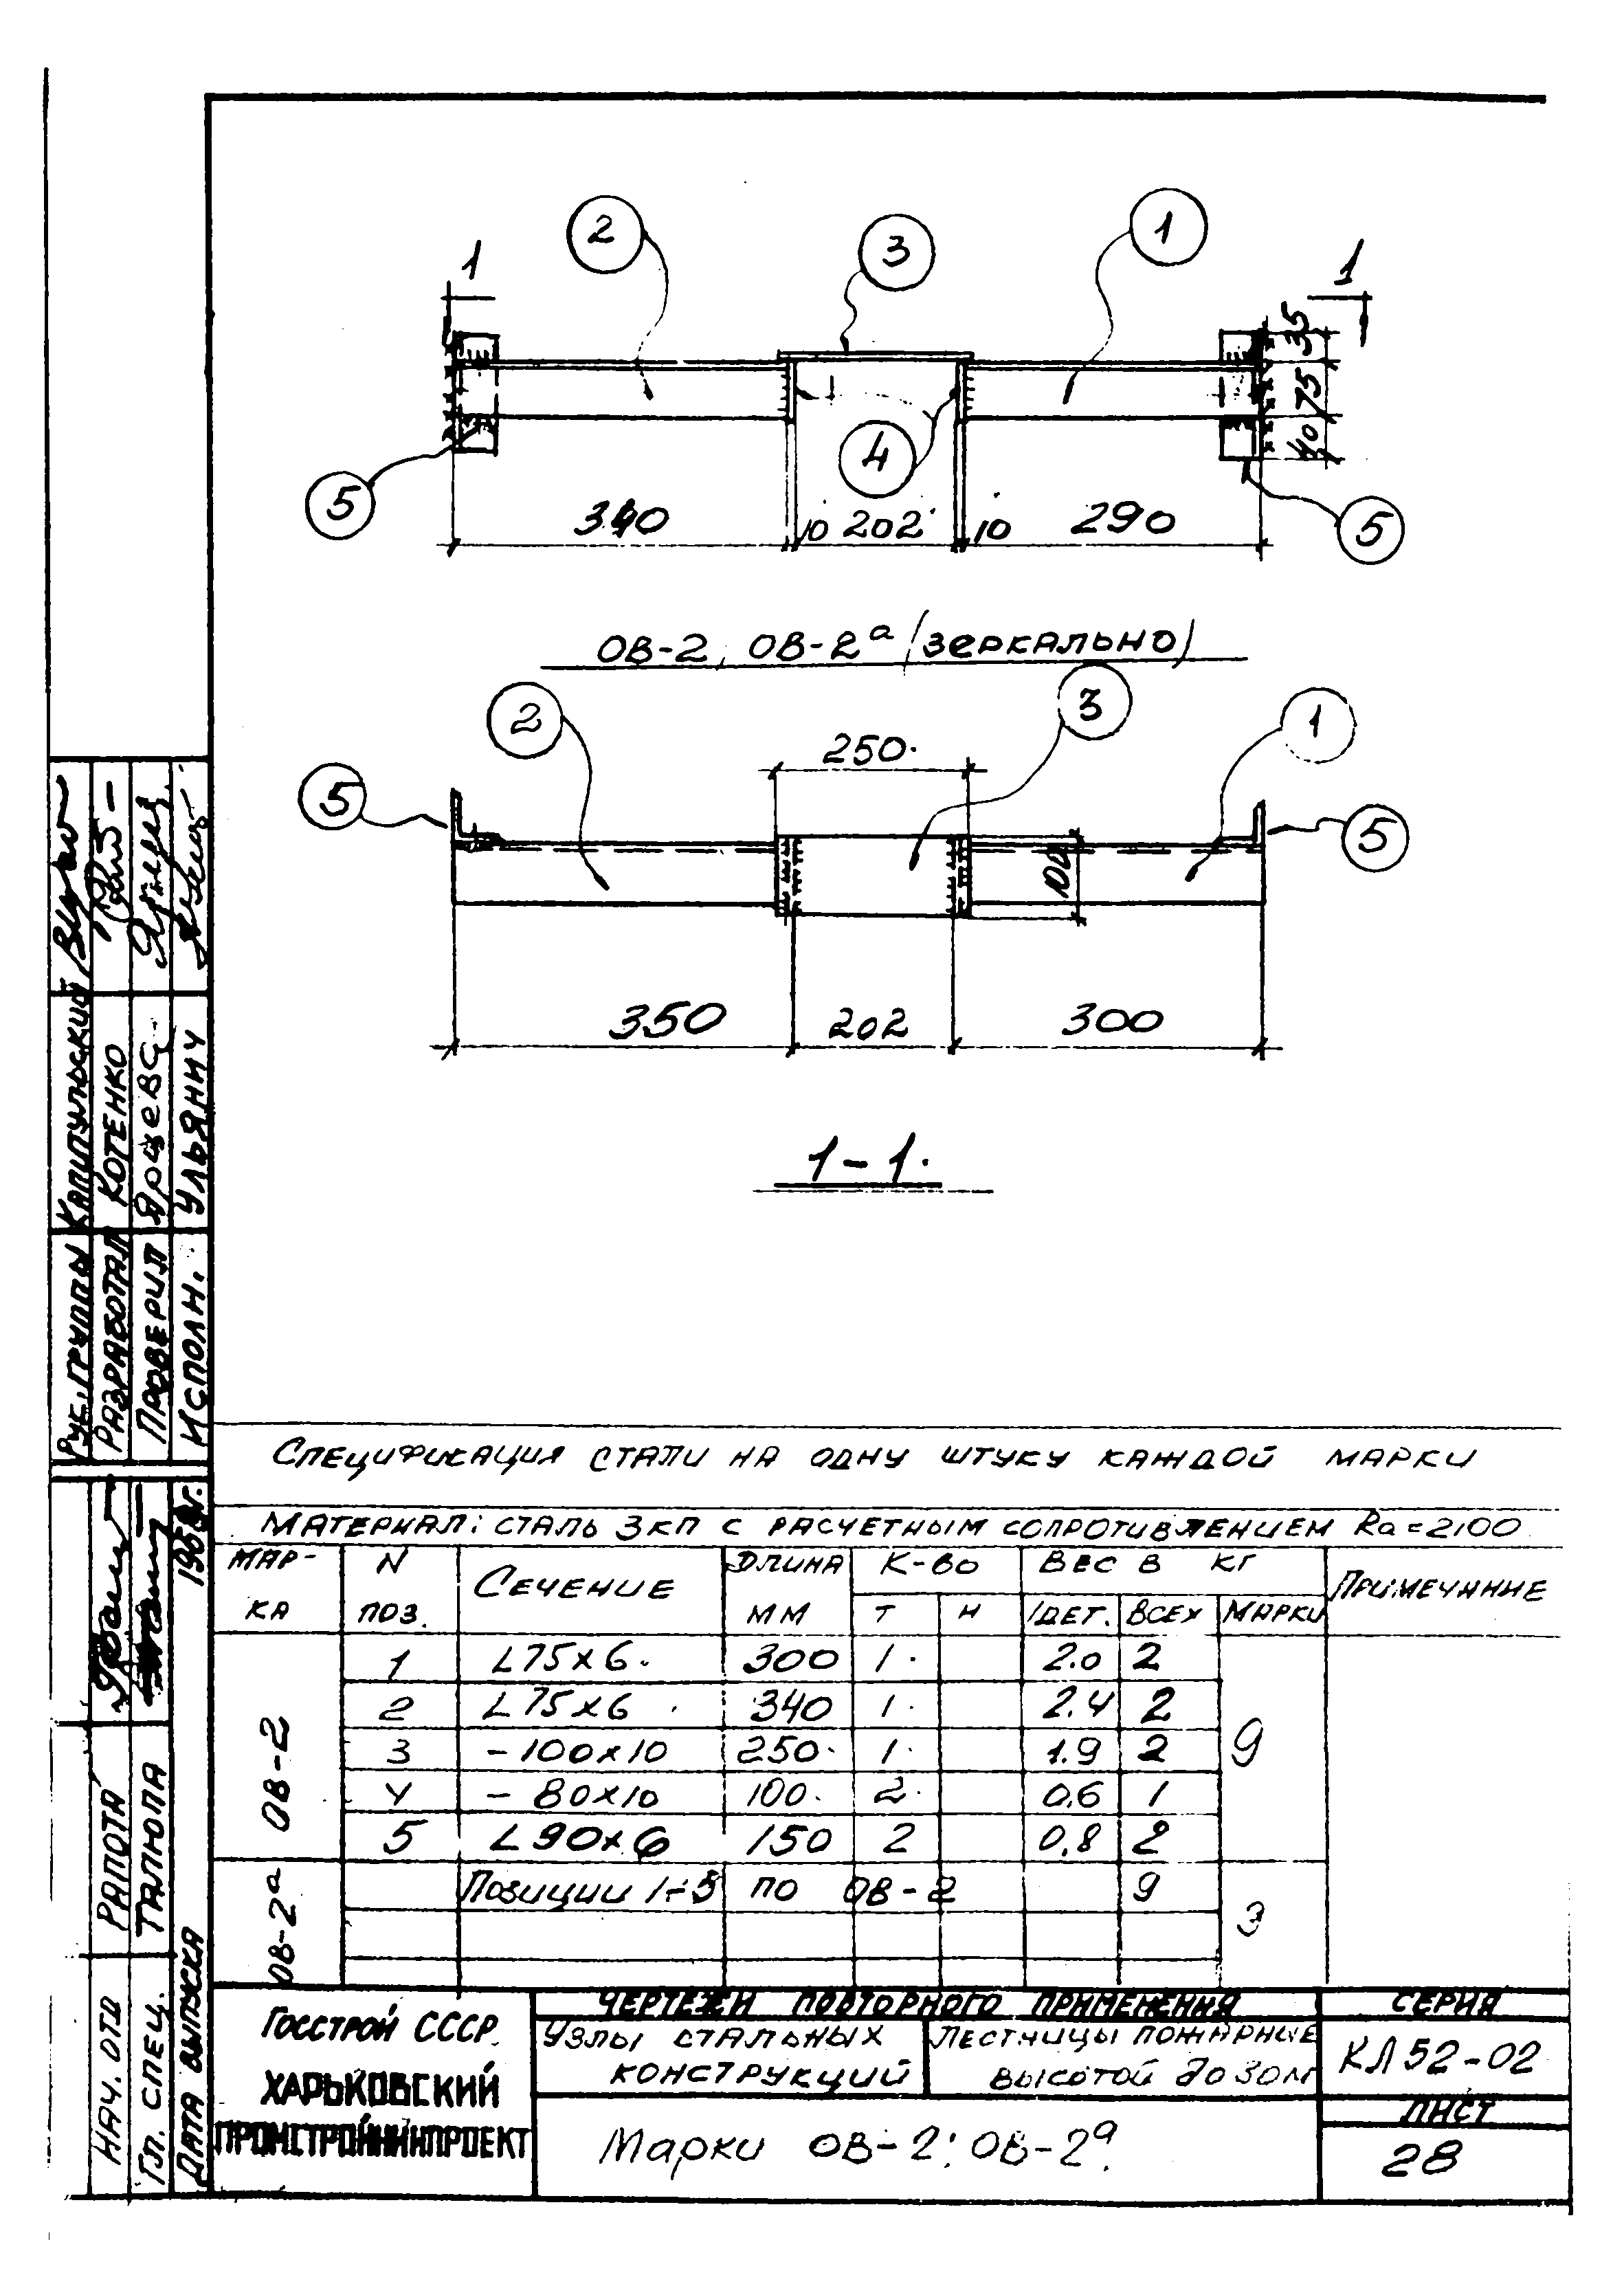 2
3
1
1
1
35
75
40
5
4
5
340
10
202
10
290
ОВ-2, ОВ-2а (зеркально)
2
3
1
250
5
5
100
350
202
300
1-1.
Спецификация стали на одну штуку каждой марки
Материал: сталь 3кп с расчетным сопротивлением Ra=2100
Марка
N поз.
Сечение
Длина мм
К-во
Вес в кг
Примечание
т
н
1дет.
Всех
Марки
ОВ-2
1 L75x6 300 1 2.0 2
2 L75x6 340 1 2.4 2
3 -100x10 250 1 1.9 2
4 -80x10 100 2 0.6 1
5 L90x6 150 2 0.8 2
9
ОВ-2а
Позиции 1÷5 по ОВ-2 9
Госстрой СССР
Харьковский
Промстройниипроект
Чертежи повторного применения
Узлы стальных конструкций
Лестницы пожарные высотой до 30м
Серия
КЛ52-02
Лист
28
Марки ОВ-2; ОВ-2а.
Рук. группы Капитульский
Разработал Котенко
Проверил Ярцева
Исполн. Ульянич
Нач. отд Рапота
Гл. спец. Талюпа
Дата выпуска